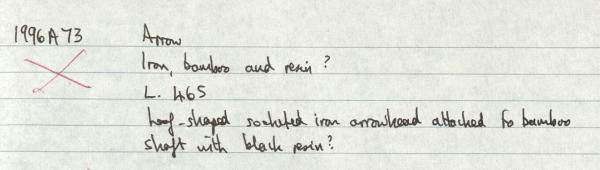 1996A73 Arrow
Iron, bamboo and resin?
L. 465
Leaf-shaped socketed iron arrowhead attached to bamboo
shaft with black resin?